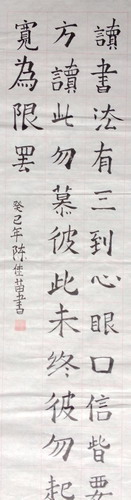 讀書法有三到心眼口信皆要
方讀此勿慕彼此未终彼勿起
寬為限罷
癸巳年陈佳苗書